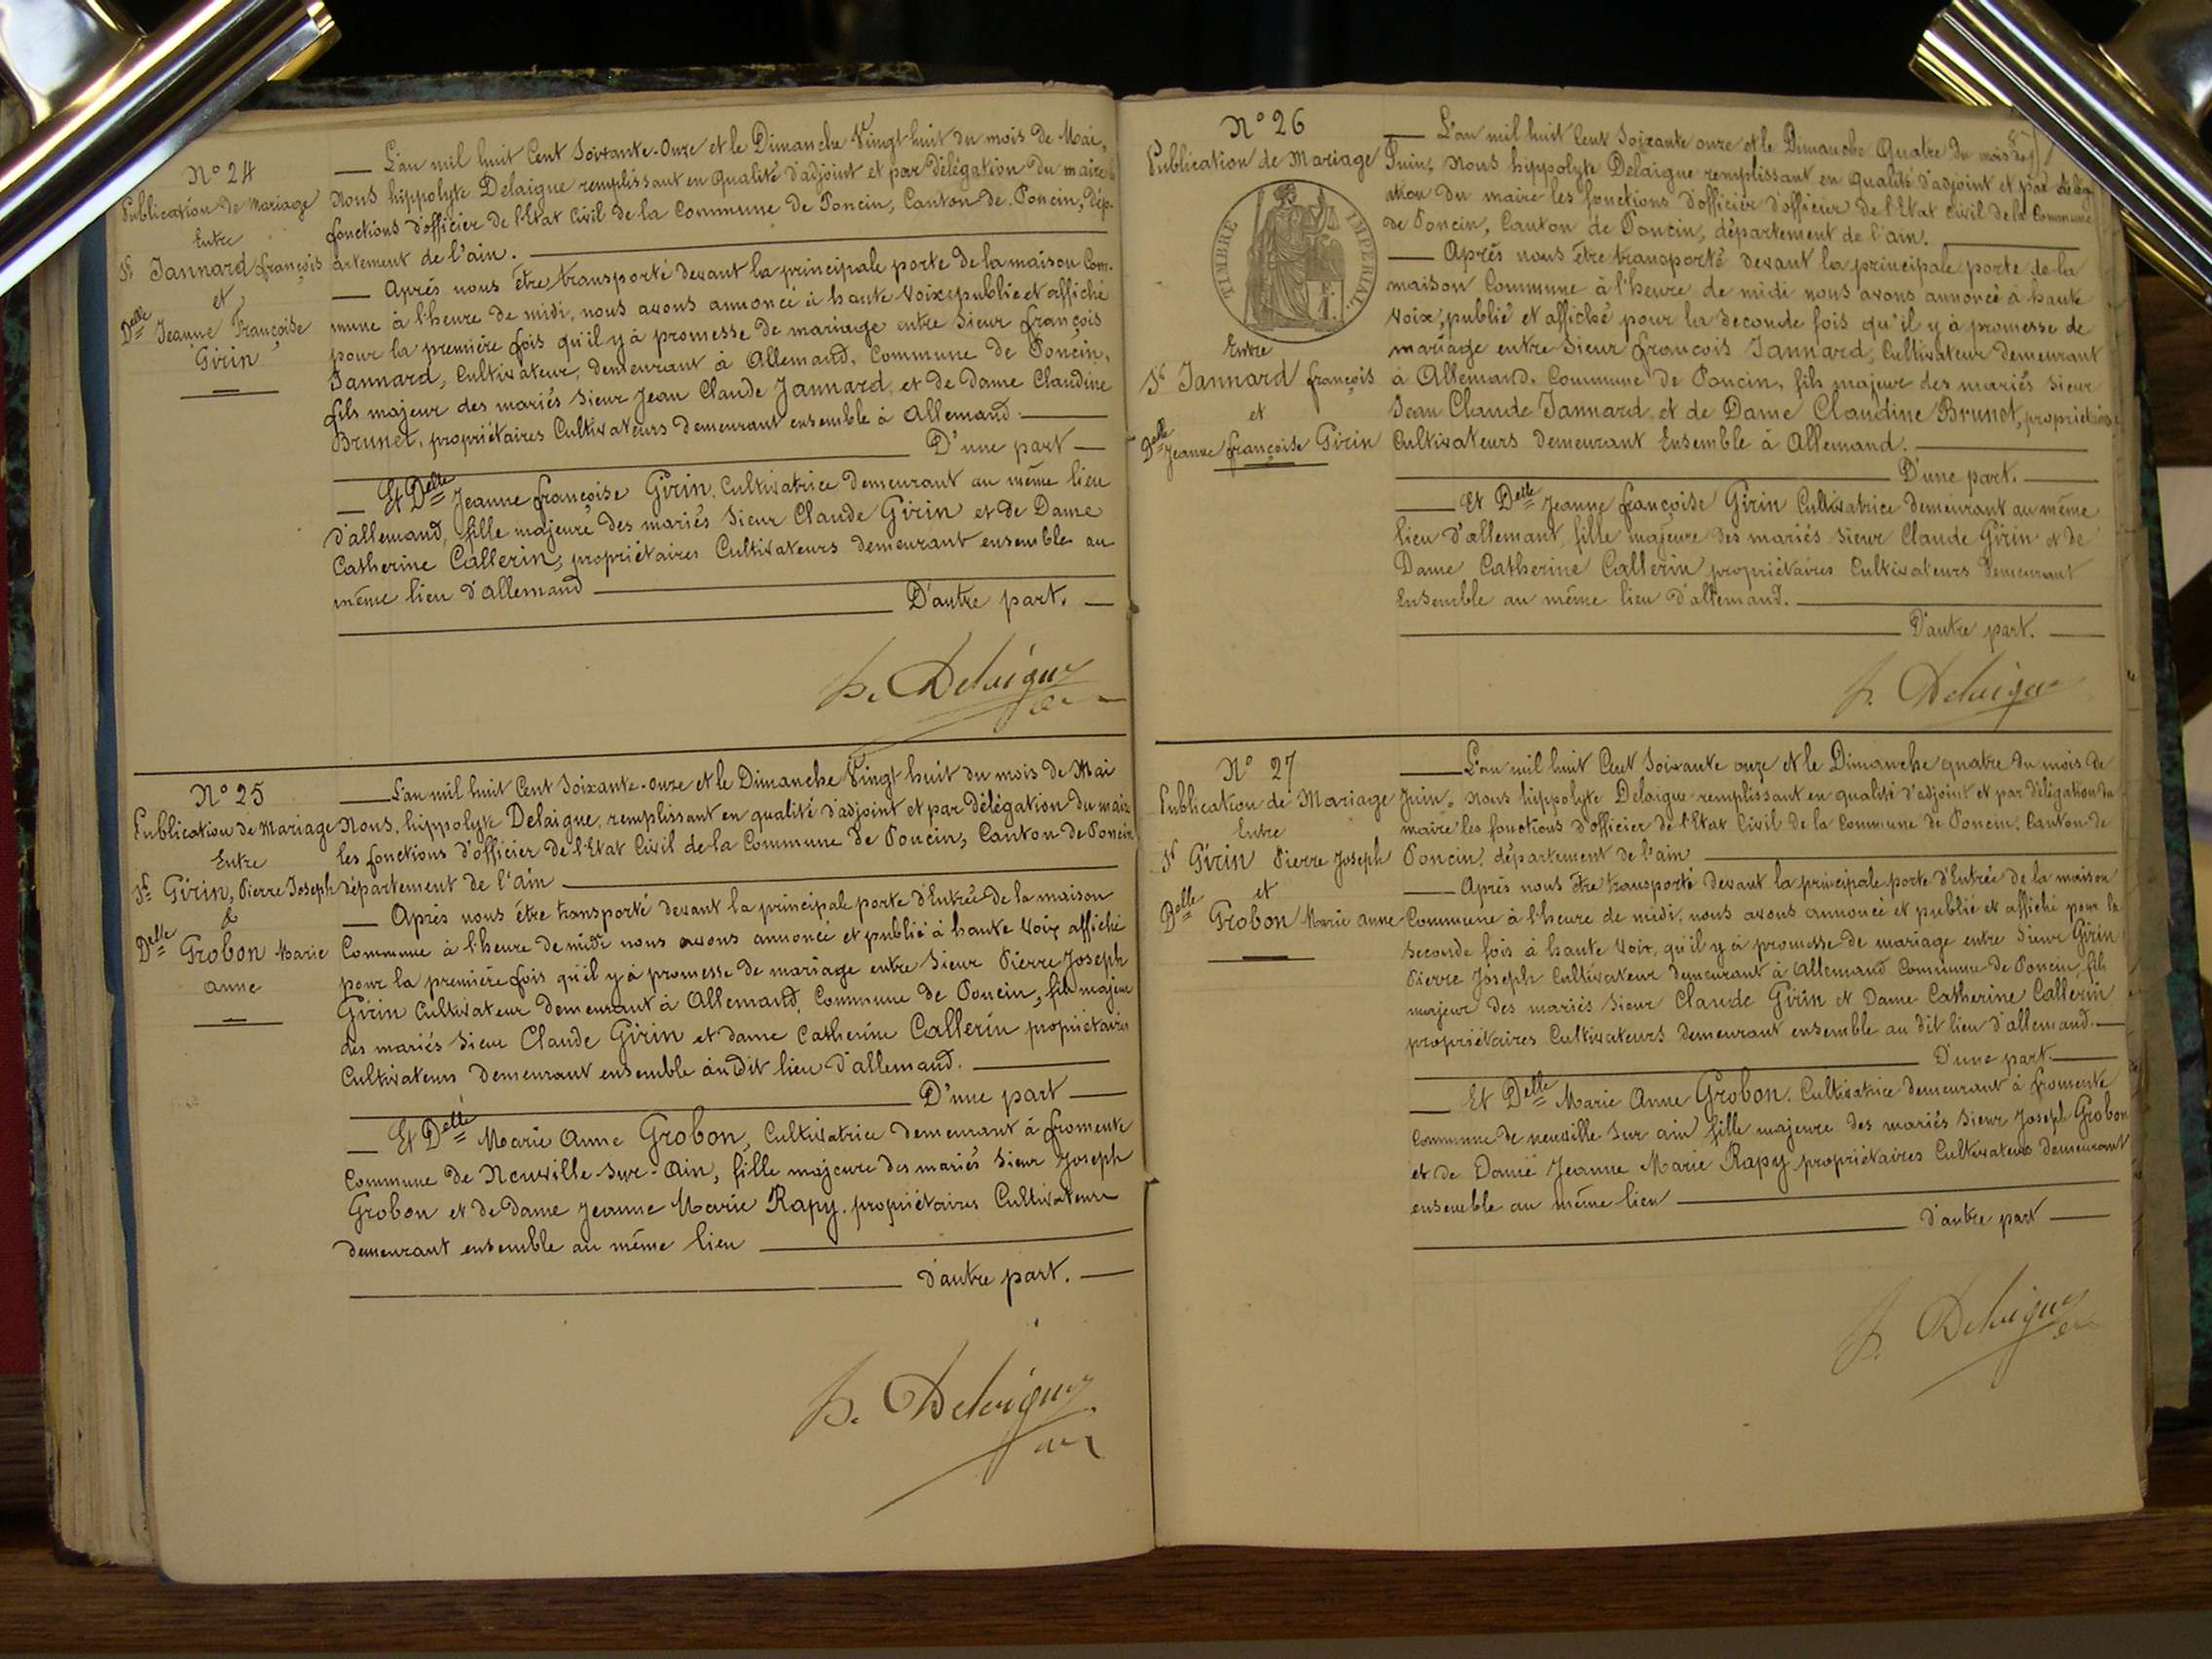 N° 24
Publication de Mariage
Entre
Sr Jannard françois
et
Delle Jeanne Françoise
Girin
L'an mil huit Cent Soixante-Onze et le Dimanche Vingt huit du mois de Mai,
Nous hippolyte Delaigue remplissant en qualité d'adjoint et par délégation du maire les
fonctions d'officier de l'Etat Civil de la Commune de Poncin, Canton de Poncin, Dép-
artement de l'ain.
Après nous être transporté devant la principale porte de la maison Com-
mune à l'heure de midi, nous avons annoncé à haute voix publié et affiché
pour la première fois qu'il y à promesse de mariage entre Sieur françois
Jannard, Cultivateur, demeurant à Allemand, Commune de Poncin,
fils majeur des mariés Sieur Jean Claude Jannard, et de Dame Claudine
Brunet, propriétaires Cultivateurs demeurant ensemble à Allemand.
D'une part
Et Delle Jeanne françoise Girin, Cultivatrice demeurant au même lieu
d'allemand, fille majeure des mariés Sieur Claude Girin et de Dame
Catherine Callerin, propriétaires Cultivateurs demeurant ensemble au
même lieu d'allemand
D'autre part.
h. Delaigue
N° 25
Publication de Mariage
Entre
Sr Girin, Pierre Joseph
&
Delle Grobon Marie
anne
L'an mil huit Cent Soixante-onze et le Dimanche Vingt huit du mois de Mai
Nous, hippolyte Delaigue, remplissant en qualité d'adjoint et par délégation du maire
les fonctions d'officier de l'Etat Civil de la Commune de Poncin, Canton de Poncin
département de l'ain
Après nous être transporté devant la principale porte d'Entrée de la maison
Commune à l'heure de midi nous avons annoncé et publié à haute voix affiché
pour la première fois qu'il y à promesse de mariage entre Sieur Pierre Joseph
Girin Cultivateur demeurant à Allemand, Commune de Poncin, fils majeur
des mariés Sieur Claude Girin et dame Catherine Callerin propriétaires
Cultivateurs demeurant ensemble au dit lieu d'allemand.
D'une part
Et Delle Marie Anne Grobon, Cultivatrice demeurant à fromente
Commune de Neuville-Sur-Ain, fille majeure des mariés Sieur Joseph
Grobon et de dame Jeanne Marie Rapy, propriétaires Cultivateurs
demeurant ensemble au même lieu
d'autre part.
h. Delaigue
N° 26
Publication de Mariage
TIMBRE IMPÉRIAL
Entre
Sr Jannard françois
et
Delle Jeanne françoise Girin
L'an mil huit Cent Soixante onze et le Dimanche Quatre du mois de
Juin, Nous hippolyte Delaigue remplissant en qualité d'adjoint et par délég
ation du maire les fonctions d'officier d'officier de l'Etat Civil de la Commune
de Poncin, Canton de Poncin, département de l'ain.
Après nous être transporté devant la principale porte de la
maison Commune à l'heure de midi nous avons annoncé à haute
voix, publié et affiché pour la seconde fois qu'il y à promesse de
mariage entre Sieur françois Jannard, Cultivateur demeurant
à Allemand, Commune de Poncin, fils majeur des mariés Sieur
Jean Claude Jannard, et de Dame Claudine Brunet, propriétaires
Cultivateurs demeurant Ensemble à Allemand.
D'une part.
Et Delle Jeanne françoise Girin Cultivatrice demeurant au même
lieu d'allemant, fille majeure des mariés Sieur Claude Girin et de
Dame Catherine Callerin propriétaires Cultivateurs demeurant
Ensemble au même lieu d'allemand.
D'autre part.
h. Delaigue
N° 27
Publication de Mariage
Entre
Sr Girin Pierre Joseph
et
Delle Grobon Marie anne
L'an mil huit Cent Soixante onze et le Dimanche quatre du mois de
Juin, Nous hippolyte Delaigue remplissant en qualité d'adjoint et par délégation du
maire les fonctions d'officier de l'Etat Civil de la Commune de Poncin, Canton de
Poncin, département de l'ain
Après nous être transporté devant la principale porte d'Entrée de la maison
Commune à l'heure de midi, nous avons annoncé et publié et affiché pour la
seconde fois à haute voix, qu'il y à promesse de mariage entre Sieur Girin
Pierre Joseph Cultivateur demeurant à Allemand Commune de Poncin, fils
majeur des mariés Sieur Claude Girin et Dame Catherine Callerin
propriétaires Cultivateurs demeurant ensemble au dit lieu d'allemand.
D'une part.
Et Delle Marie Anne Grobon, Cultivatrice demeurant à fromente
Commune de neuville Sur ain fille majeure des mariés Sieur Joseph Grobon
et de Dame Jeanne Marie Rapy propriétaires Cultivateurs demeurant
ensemble au même lieu
d'autre part
h. Delaigue